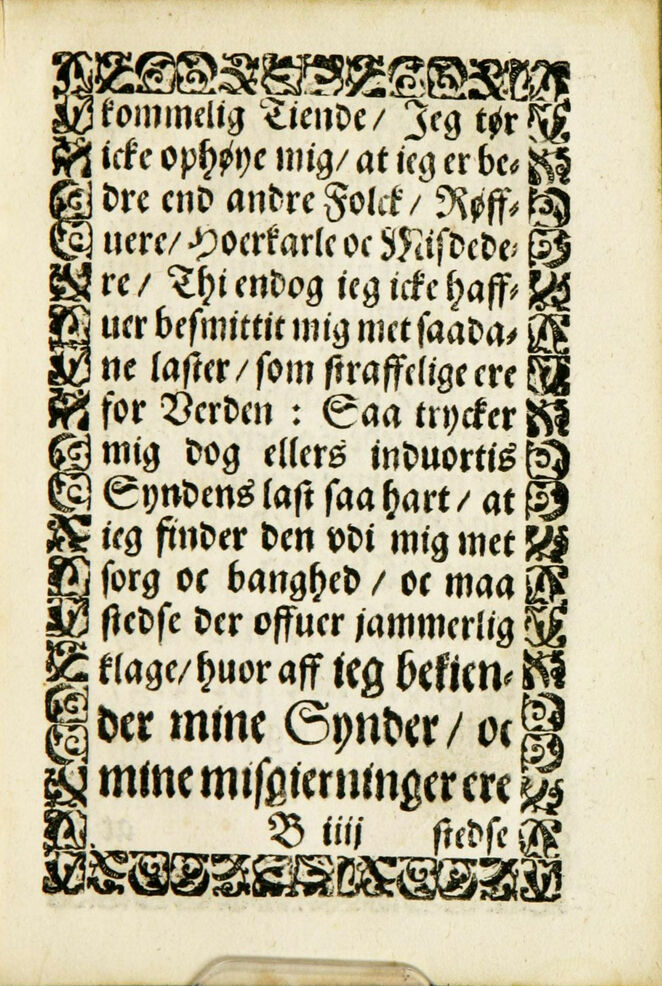 kommelig Tiende / Jeg tør
icke ophøye mig / at ieg er be⸗
dre end andre Folck / Røff⸗
uere / Hoerkarle oc Misdede⸗
re / Thi endog ieg icke haff⸗
uer besmittit mig met saada⸗
ne laster / som straffelige ere
for Verden : Saa trycker
mig dog ellers induortis
Syndens last saa hart / at
ieg finder den vdi mig met
sorg oc banghed / oc maa
stedse der offuer jammerlig
klage / huor aff ieg bekien⸗
der mine Synder / oc
mine misgierninger ere
B iiij stedse